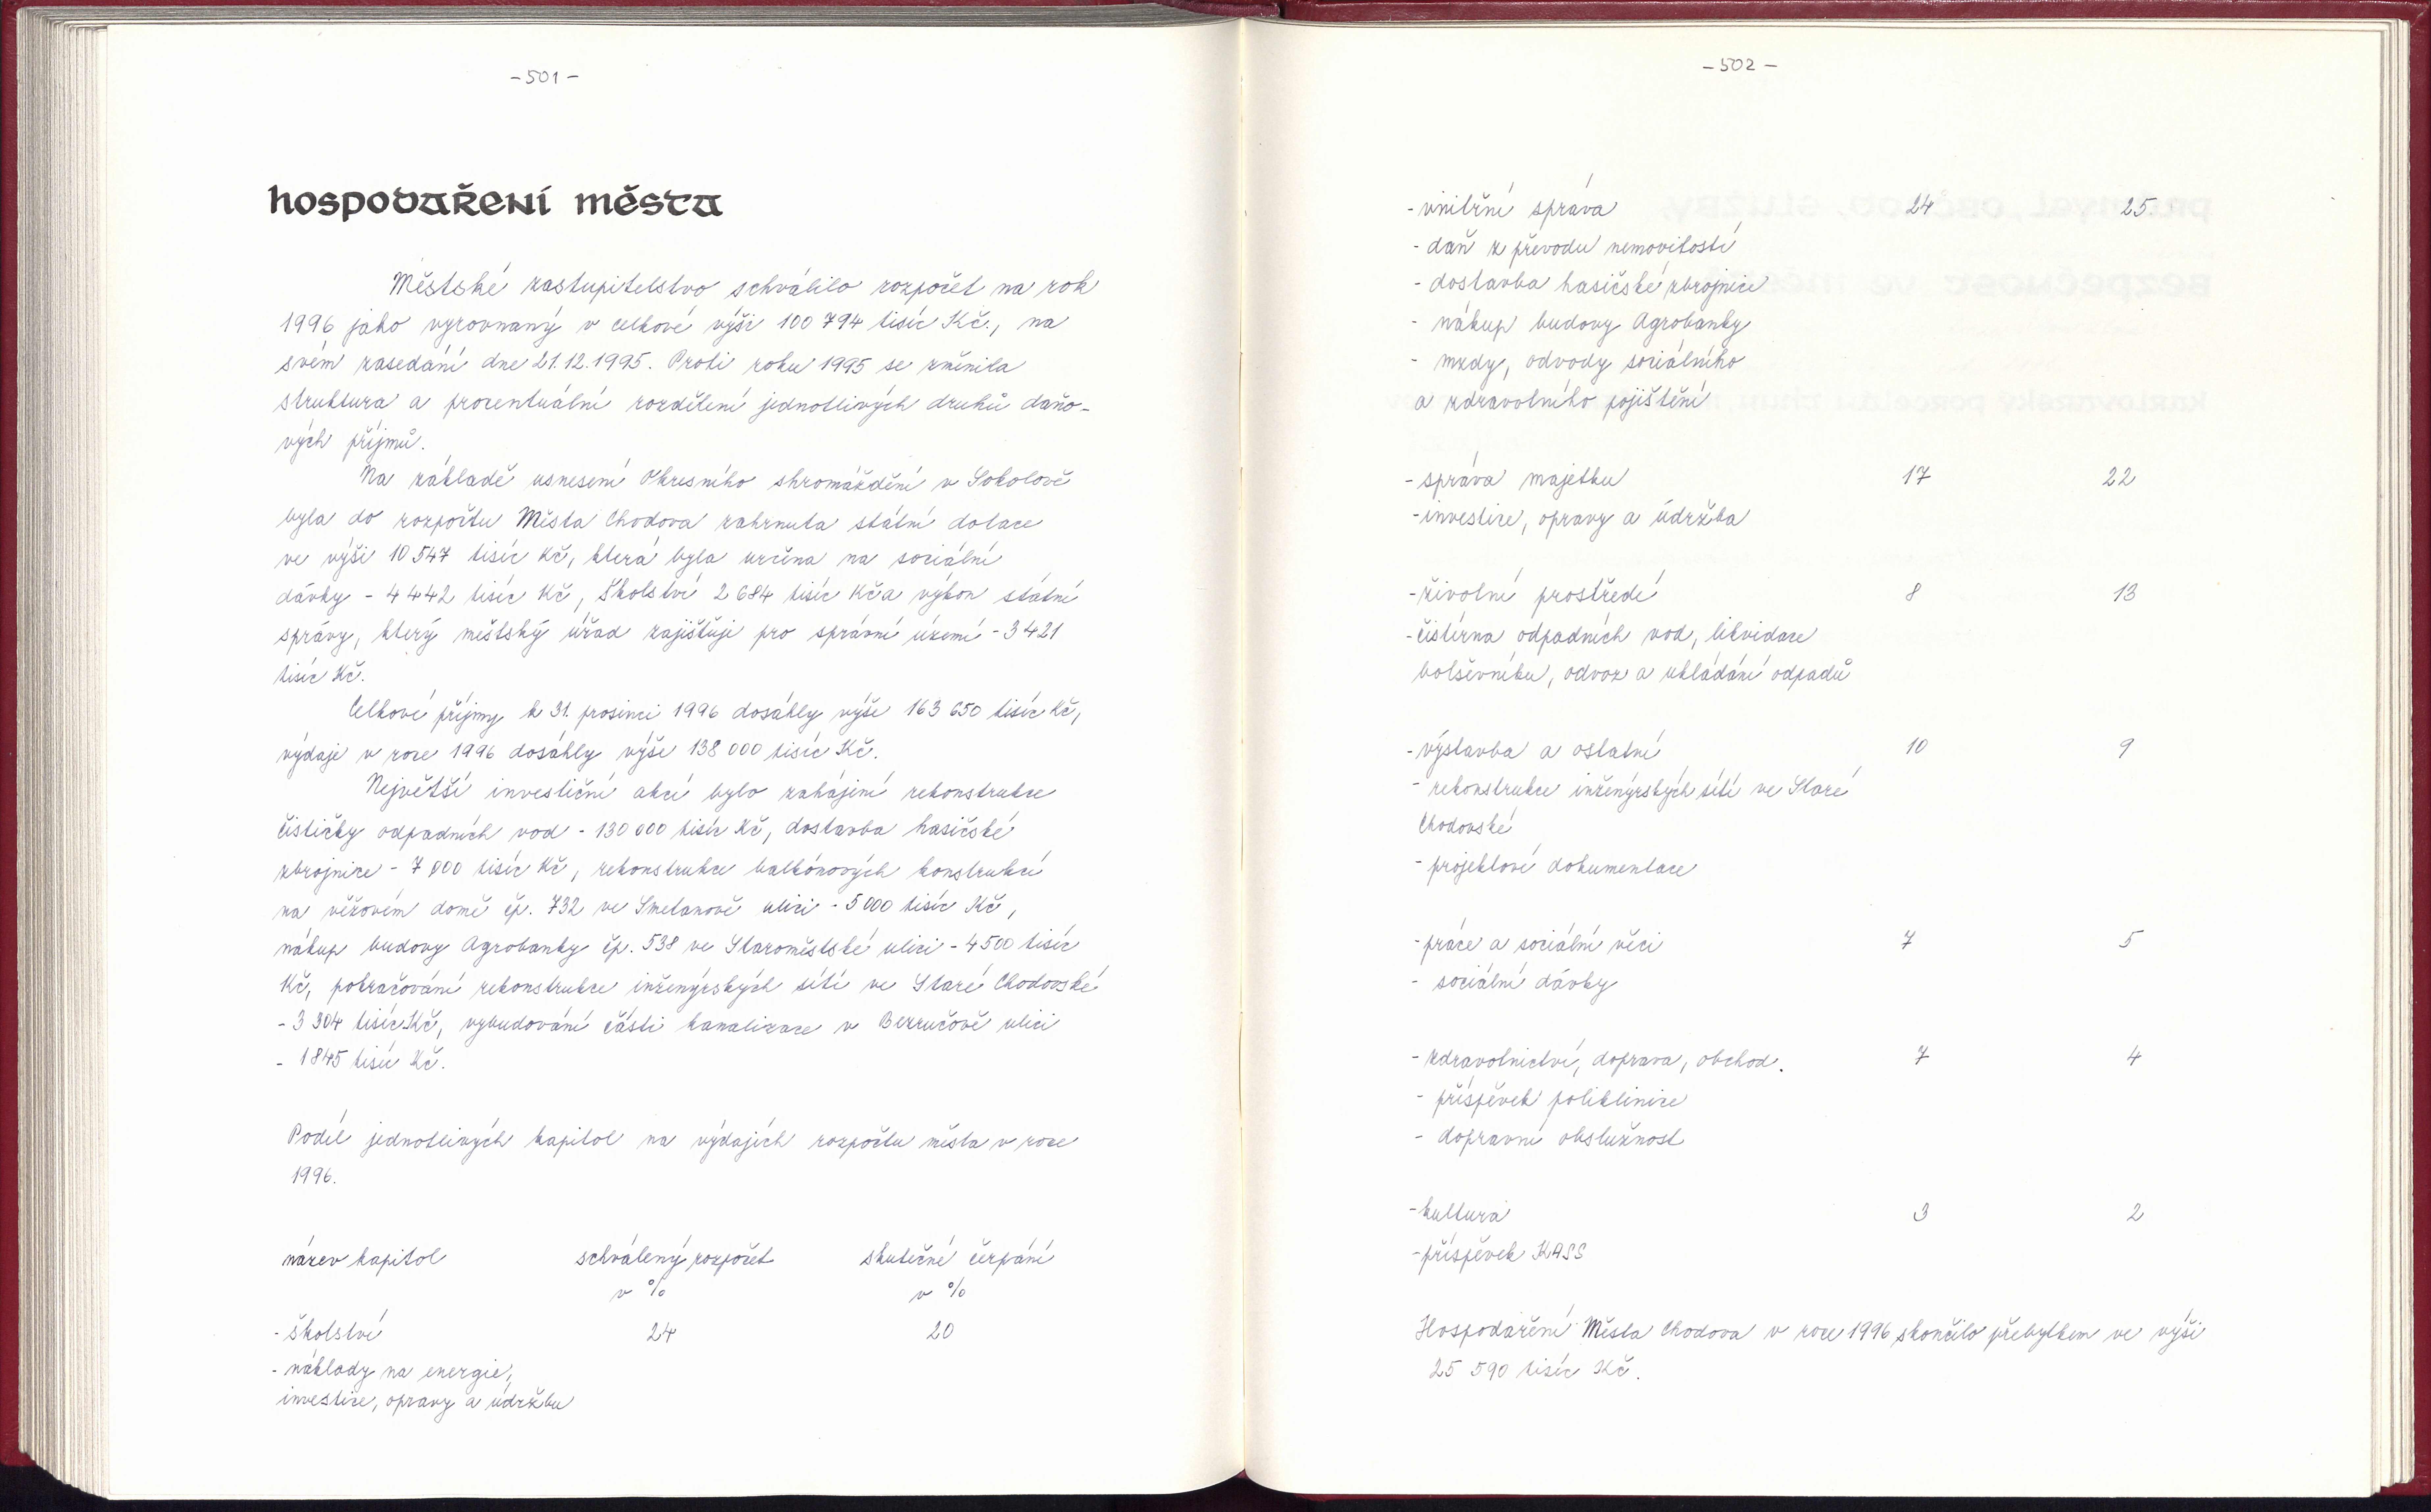 -501-
hospodaření města
Městské zastupitelstvo schválilo rozpočet na rok
1996 jako vyrovnaný v celkové výši 100 794 tisíc Kč., na
svém zasedání dne 21.12.1995. Proti roku 1995 se změnila
struktura a procentuální rozdělení jednotlivých druhů daňo-
vých příjmů.
Na základě usnesení Okresního shromáždění v Sokolově
byla do rozpočtu Města Chodova zahrnuta státní dotace
ve výši 10 547 tisíc Kč, která byla určena na sociální
dávky - 4 442 tisíc Kč, školství 2 684 tisíc Kč a výkon státní
správy, který městský úřad zajišťuje pro správní území - 3 421
tisíc Kč.
Celkové příjmy k 31. prosinci 1996 dosáhly výše 163 650 tisíc Kč,
výdaje v roce 1996 dosáhly výše 138 000 tisíc Kč.
Největší investiční akcí bylo zahájení rekonstrukce
čističky odpadních vod - 130 000 tisíc Kč, dostavba hasičské
zbrojnice - 7 000 tisíc Kč, rekonstrukce balkónových konstrukcí
na věžovém domě čp. 732 ve Smetanově ulici - 5 000 tisíc Kč,
nákup budovy Agrobanky čp. 538 ve Staroměstské ulici - 4 500 tisíc
Kč, pokračování rekonstrukce inženýrských sítí ve Staré Chodovské
- 3 304 tisíc Kč, vybudování části kanalizace v Bezručově ulici
- 1 845 tisíc Kč.
Podíl jednotlivých kapitol na výdajích rozpočtu města v roce
1996.
název kapitol schválený rozpočet skutečné čerpání
v % v %
- školství 24 20
- náklady na energie,
investice, opravy a údržbu
-502-
- vnitřní správa 24 25
- daň z převodu nemovitostí
- dostavba hasičské zbrojnice
- nákup budovy Agrobanky
- mzdy, odvody sociálního
a zdravotního pojištění
- správa majetku 17 22
- investice, opravy a údržba
- životní prostředí 8 13
- čistírna odpadních vod, likvidace
bolševníku, odvoz a ukládání odpadů
- výstavba a ostatní 10 9
- rekonstrukce inženýrských sítí ve Staré
Chodovské
- projektové dokumentace
- práce a sociální věci 7 5
- sociální dávky
- zdravotnictví, doprava, obchod. 7 4
- příspěvek poliklinice
- dopravní obslužnost
- kultura 3 2
- příspěvek KASS
Hospodaření Města Chodova v roce 1996 skončilo přebytkem ve výši
25 590 tisíc Kč.